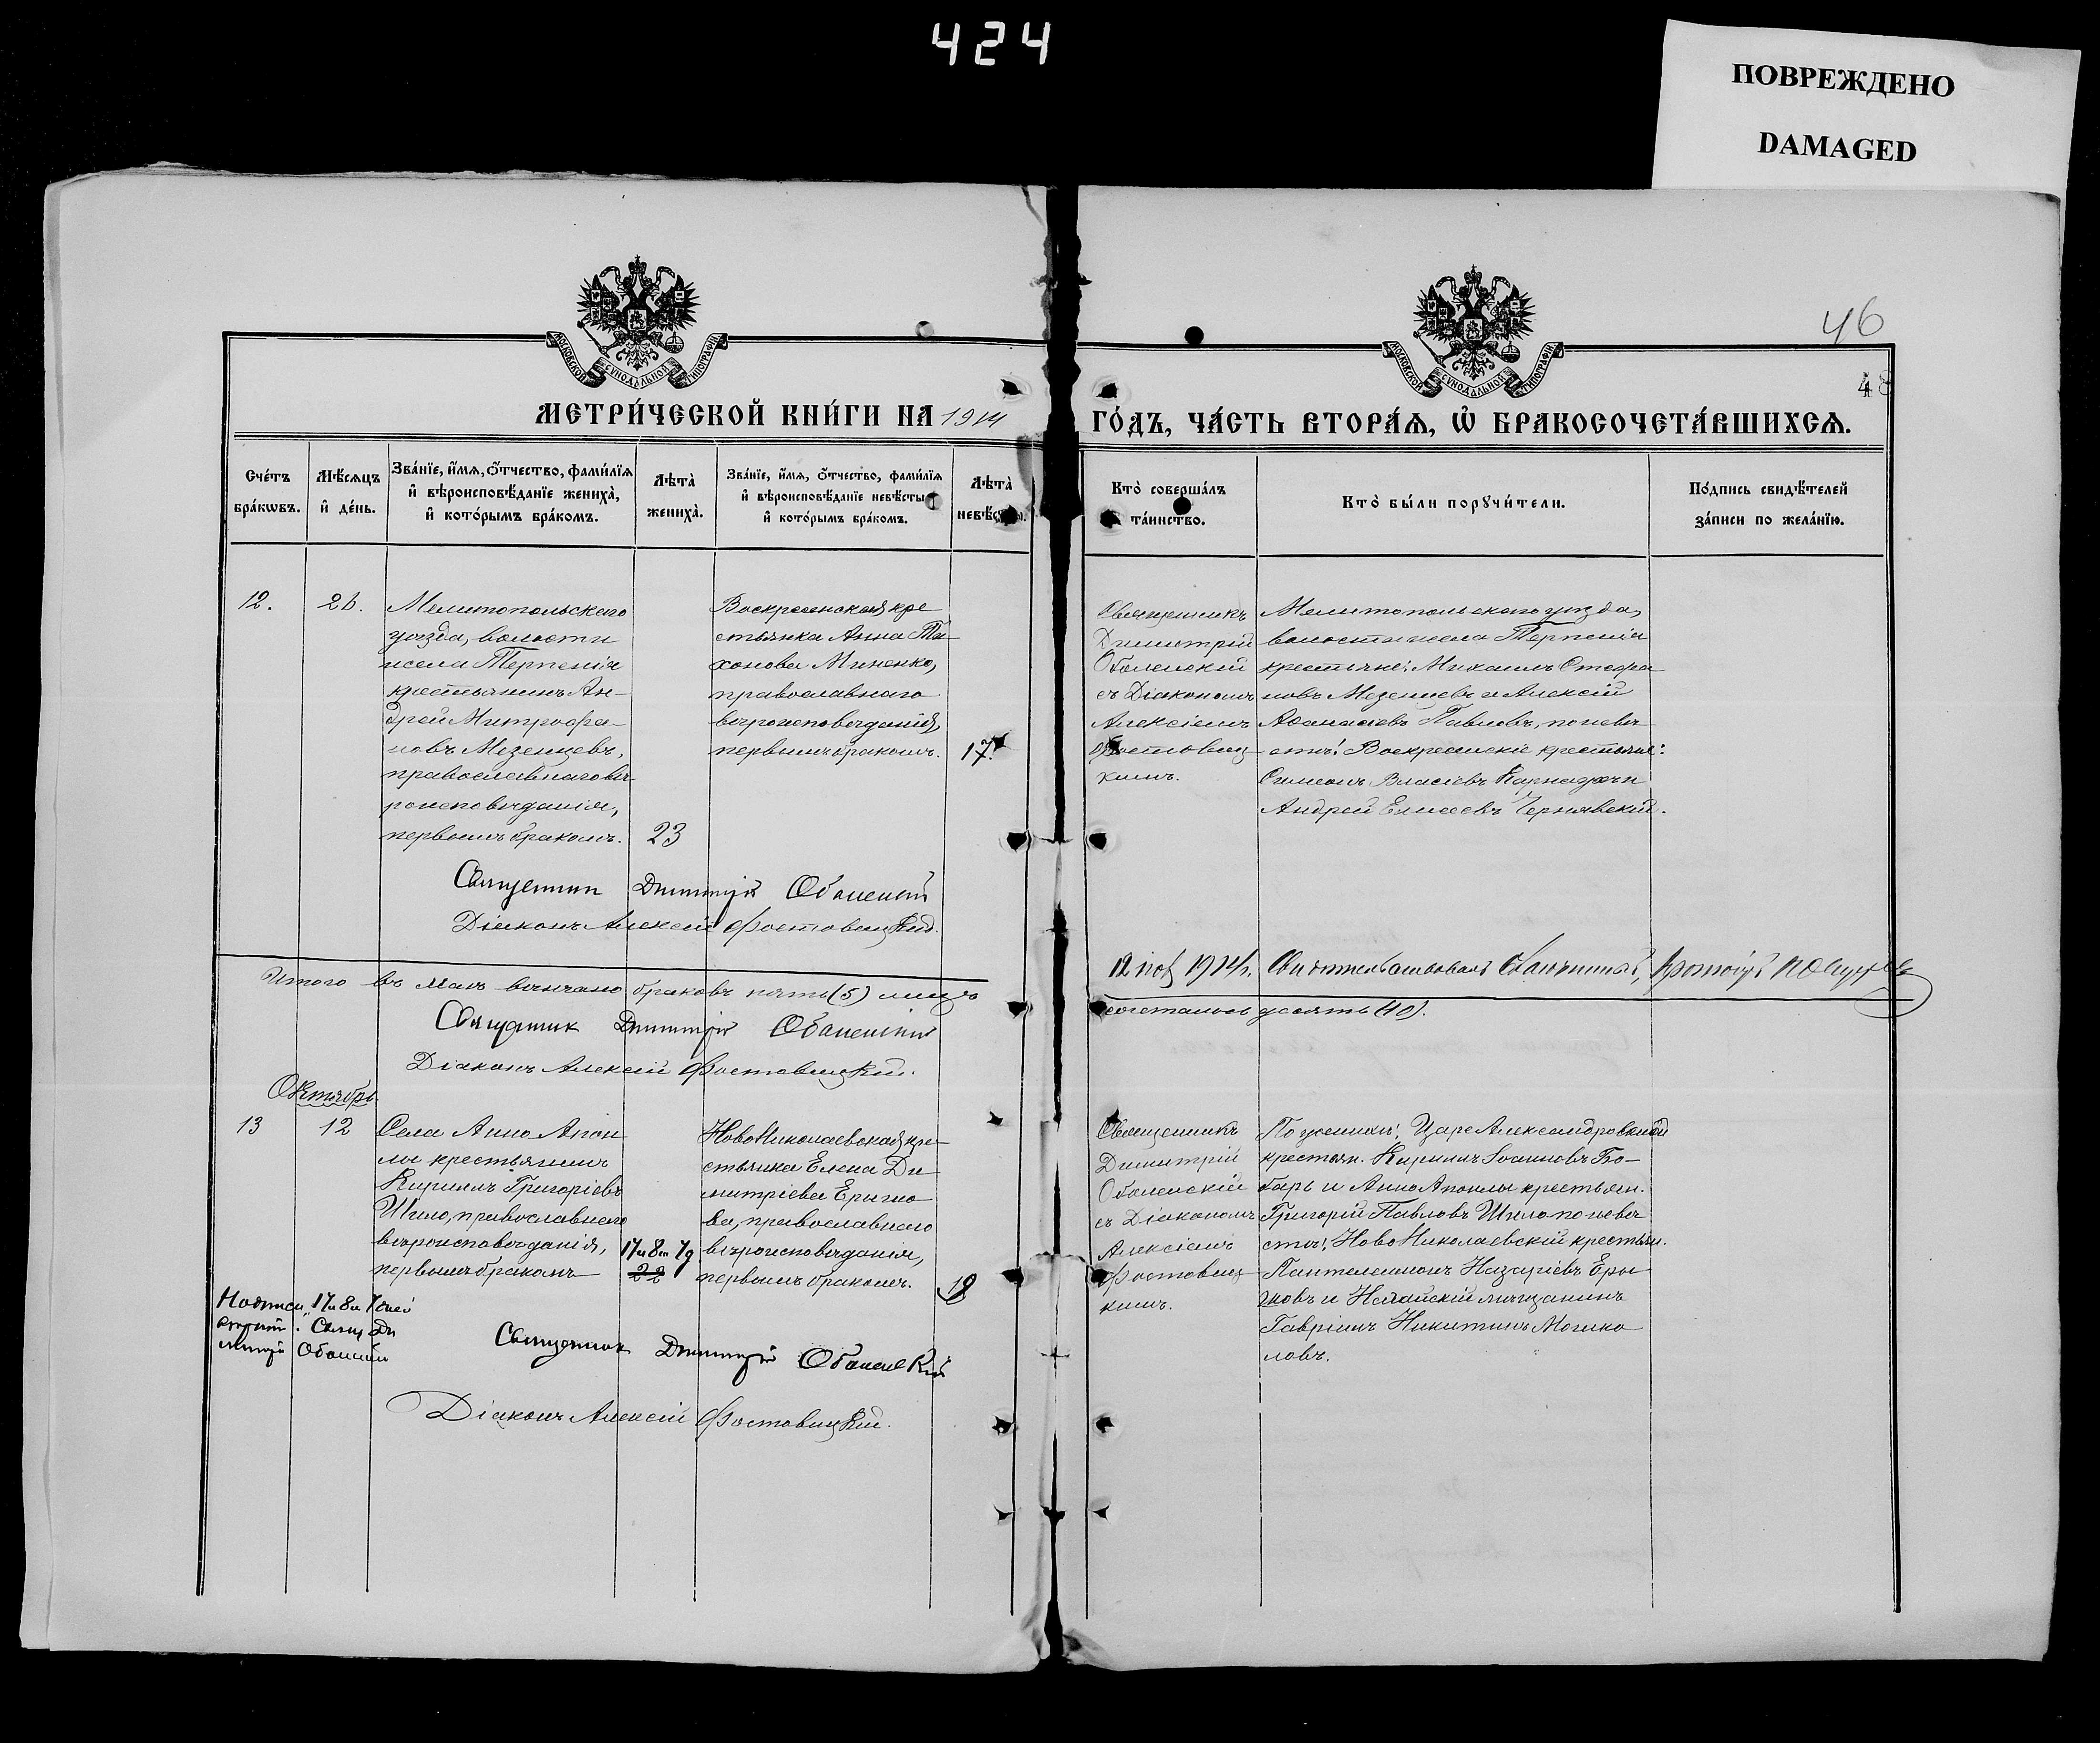 424
ПОВРЕЖДЕНО
DAMAGED
46
48
МОСКОВСКОЙ СѴНОДАЛЬНОЙ ТИПОГРАФІИ
МОСКОВСКОЙ СѴНОДАЛЬНОЙ ТИПОГРАФІИ
МЕТРИ́ЧЕСКОЙ КНИ́ГИ НА 1914 ГО́ДЪ, ЧА́СТЬ ВТОРА́Ѧ, Ѽ БРАКОСОЧЕТА́ВШИХСѦ.
Сче́тъ бра́кѡвъ.
Мѣ́сяцъ и҆ де́нь.
Зва́нїе, и҆́мѧ, ѻ҆́тчество, фами́лїѧ
и҆ вѣроисповѣ́данїе жениха̀,
и҆ кото́рымъ бра́комъ.
Лѣта̀ жениха̀.
Зва́нїе, и҆́мѧ, ѻ҆́тчество, фами́лїѧ
и҆ вѣроисповѣ́данїе невѣ́сты
и҆ кото́рымъ бра́комъ.
Лѣта̀ невѣ́сты.
Кто̀ соверша́лъ та́инство.
Кто̀ бы́ли порꙋчи́тели.
По́дпись свидѣ́телей
за́писи по жела́нїю.
12.
26.
Мелитопольскаго
уѣзда, волости
и села Терпенія
крестьянинъ Ан-
дрей Митрофа-
новъ Мезенцевъ,
православнаго вѣ-
роисповѣданія,
первымъ бракомъ.
23
Воскресенская кре
стьянка Анна Ти-
хонова Миненко,
православнаго
вѣроисповѣданія,
первымъ бракомъ.
17.
Священникъ
Димитрій
Оболенскій
съ Діакономъ
Алексіемъ
Фостовиц-
кимъ.
Мелитопольскаго уѣзда,
волости и села Терпенія
крестьяне: Михаилъ Стефа
новъ Мезенцевъ и Алексій
Аѳанасіевъ Павловъ, по невѣ-
стѣ: Воскресенскіе крестьяне:
Симеонъ Власіевъ Карнаухъ и
Андрей Елисеевъ Чернявскій.
Священник Димитрій Оболенскій
Діаконъ Алексій Фостовицкій.
12 1914 г. Свидѣтельствовалъ Благочинный, Протоіерей
Итого въ маѣ вѣнчано браковъ пять (5) лицъ
сочеталось десять (10).
Священник Димитрій Оболенскій
Діаконъ Алексій Фостовицкій.
Октябрь
13
12
Села Анно Апон
лы крестьянинъ
Кириллъ Григоріевъ
Шило, православнаго
вѣроисповѣданія,
первымъ бракомъ
17л 8м 7д
22
НовоНиколаевская кре-
стьянка Елена Ди
митріева Ерыгно
ва, православнаго
вѣроисповѣданія,
первымъ бракомъ.
18
Священникъ
Димитрій
Оболенскій
съ Діакономъ
Алексіемъ
Фостовиц-
кимъ.
По женихѣ: ЦареАлександровскій
крестьян. Кириллъ Іоанновъ Бо-
барь и Анно Апонлы крестьян.
Григорій Павловъ Шило по невѣ
стѣ: НовоНиколаевскій крестьян.
Пантелеимонъ Назаріевъ Еры
гновъ и Ногайскій мѣщанинъ
Гавріилъ Никитинъ Могико
ловъ.
Надписи „17л 8м 7 дней
вѣрить. Свящ Ди
митрій Оболенскій
Священник Димитрій Оболенскій
Діаконъ Алексій Фостовицкій.